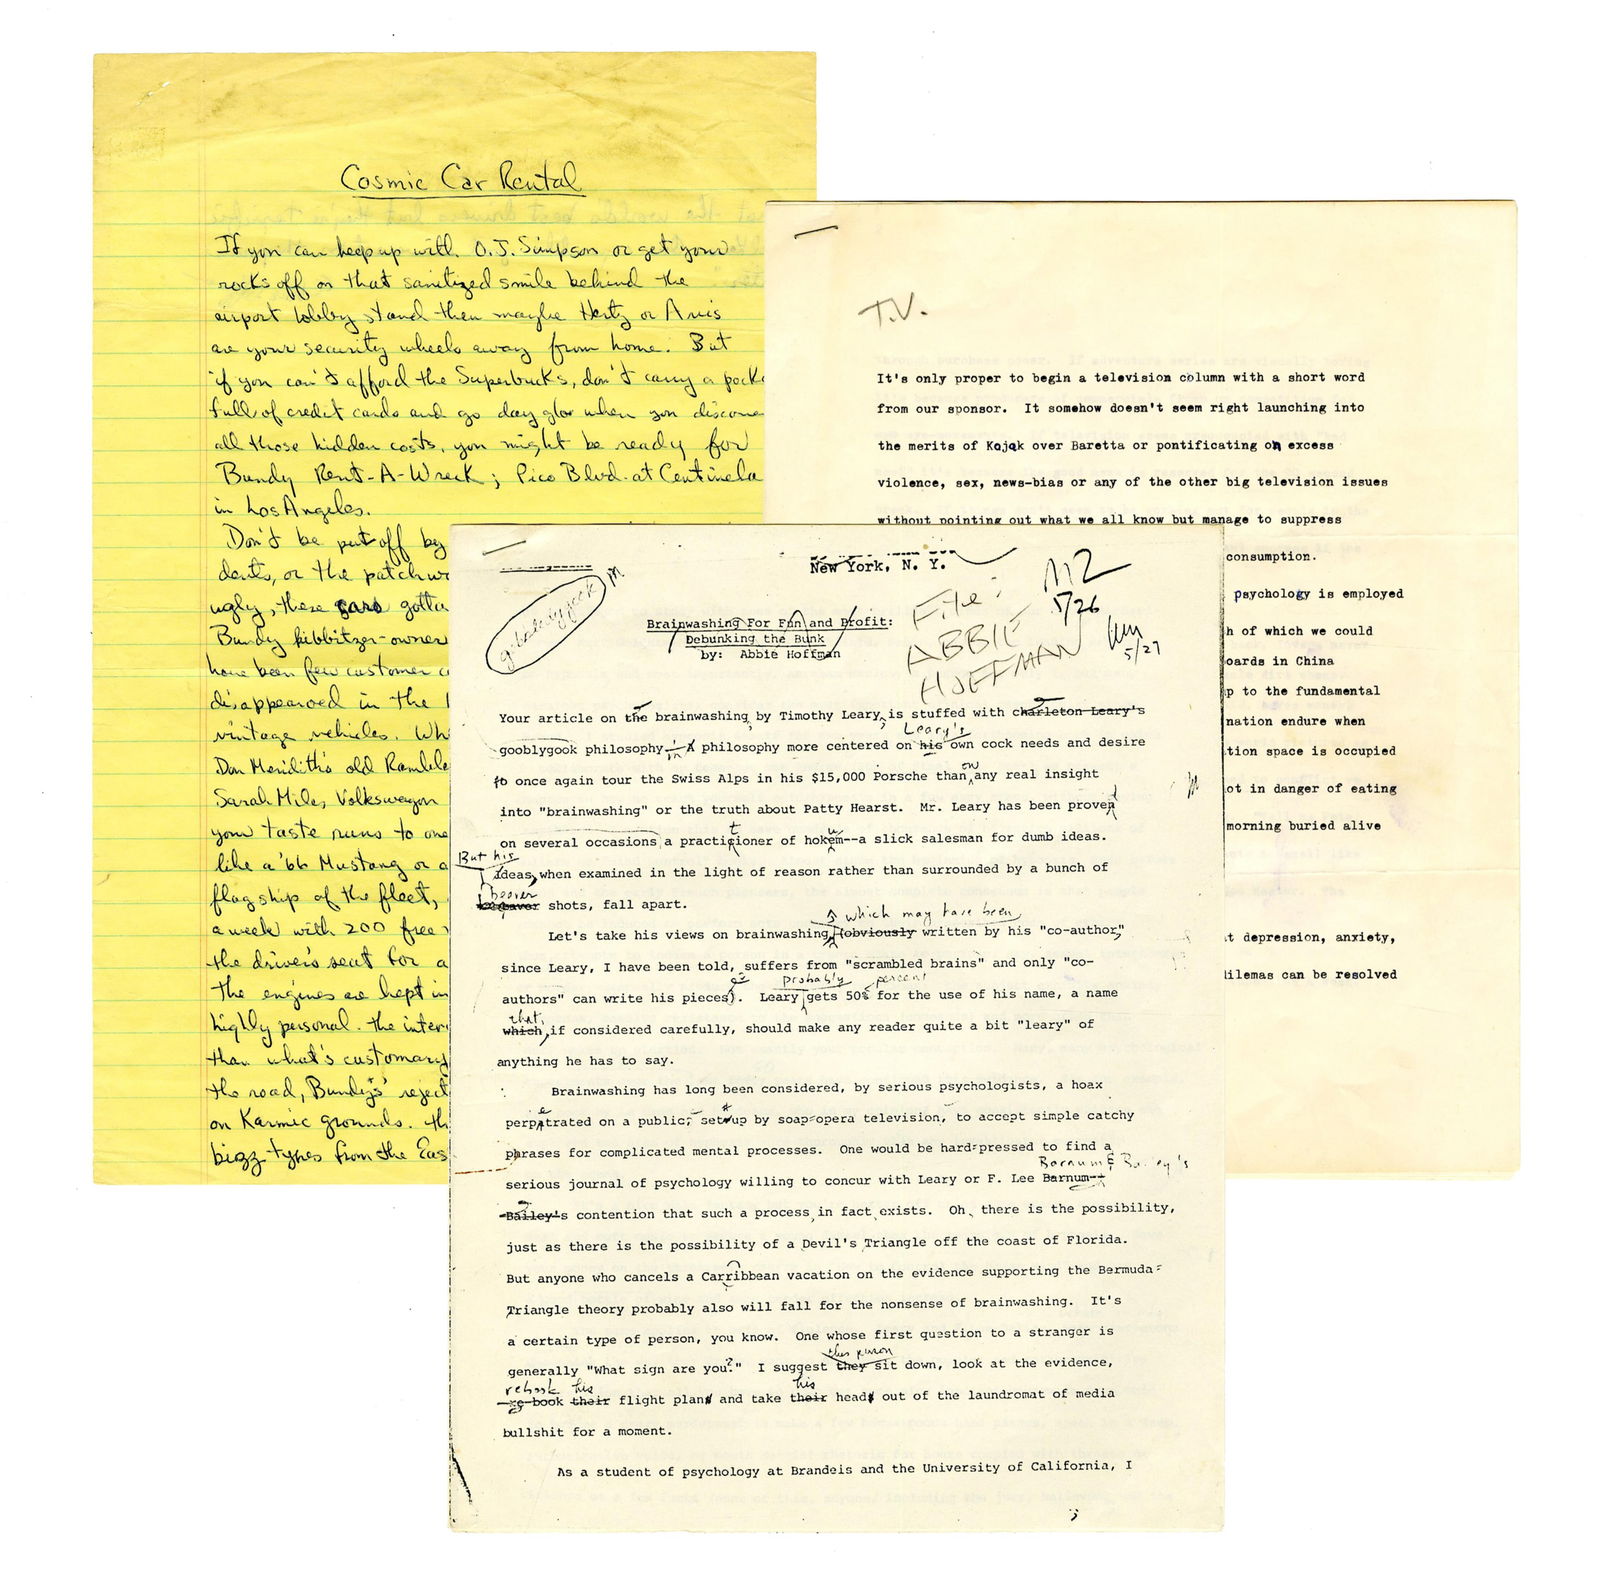 Cosmic Car Rental
If you can keep up with O.J. Simpson or get your
rocks off on that sanitized smile behind the
airport lobby stand then maybe Hertz or Avis
are your security wheels away from home. But
if you can't afford the Superbucks, don't carry a pock
full of credit cards and go day glo when you discove
all those hidden costs, you might be ready for
Bundy Rent-A-Wreck; Pico Blvd. at Centinela
in Los Angeles.
Don't be put off by
dents, or the patchwo
ugly, these cars gotta
Bundy kibbitzer-owner
have been few customer c
disappeared in the
vintage vehicles. Wh
Don Meridith's old Ramble
Sarah Miles Volkswagon
your taste runs to one
like a '66 Mustang or a
flagship of the fleet,
a week with 200 free
the drivers seat for a
The engines are kept in
highly personal. The inter
than what's customary
the road, Bundy's reject
on Karmic grounds. th
bizz-types from the Eas
T.V.
It's only proper to begin a television column with a short word
from our sponsor. It somehow doesn't seem right launching into
the merits of Kojak over Baretta or pontificating on excess
violence, sex, news-bias or any of the other big television issues
without pointing out what we all know but manage to suppress
consumption.
psychology is employed
h of which we could
oards in China
p to the fundamental
nation endure when
tion space is occupied
ot in danger of eating
morning buried alive
t depression, anxiety,
dilemas can be resolved
New York, N. Y.
gobbledygook
M2
5/26
5/27
File:
ABBIE
HOFFMAN
Brainwashing For Fun and Profit:
Debunking the Bunk
by: Abbie Hoffman
Your article on the brainwashing by Timothy Leary is stuffed with charleton Leary's
Leary's
gooblygook philosophy in philosophy more centered on his own cock needs and desire
on
to once again tour the Swiss Alps in his $15,000 Porsche than any real insight
into "brainwashing" or the truth about Patty Hearst. Mr. Leary has been proven
on several occasions a practitioner of hokem--a slick salesman for dumb ideas.
But his
ideas, when examined in the light of reason rather than surrounded by a bunch of
beaver
shots, fall apart.
which may have been
Let's take his views on brainwashing (obviously written by his "co-author,"
since Leary, I have been told, suffers from "scrambled brains" and only "co-
probably percent
authors" can write his pieces). Leary gets 50% for the use of his name, a name
that,
which, if considered carefully, should make any reader quite a bit "leary" of
anything he has to say.
Brainwashing has long been considered, by serious psychologists, a hoax
perpetrated on a public, set up by soap-opera television, to accept simple catchy
phrases for complicated mental processes. One would be hard-pressed to find a
Barnum & Bailey's
serious journal of psychology willing to concur with Leary or F. Lee Barnum
Bailey's contention that such a process, in fact, exists. Oh, there is the possibility,
just as there is the possibility of a Devil's Triangle off the coast of Florida.
But anyone who cancels a Carribbean vacation on the evidence supporting the Bermuda-
Triangle theory probably also will fall for the nonsense of brainwashing. It's
a certain type of person, you know. One whose first question to a stranger is
this person
generally "What sign are you?" I suggest they sit down, look at the evidence,
rebook his his
re-book their flight plans and take their heads out of the laundromat of media
bullshit for a moment.
As a student of psychology at Brandeis and the University of California, I